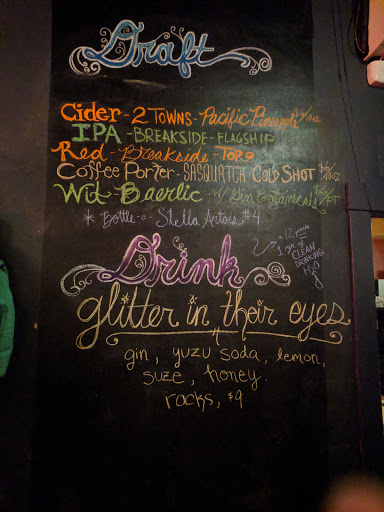 Draft
Cider - 2 Towns - Pacific Pineapple
IPA - Breakside - Flagship
Red - Breakside - Top 9
Coffee Porter - Sasquatch Cold Shot $6/10oz
Wit - Baerlic - w/ Gin Botanicals
* Bottle-o- Stella Artois $4
Drink
= 12 packs
1 yr of
CLEAN
DRINKING
H2O
glitter in their eyes
gin, yuzu soda, lemon,
suze, honey.
rocks, $9